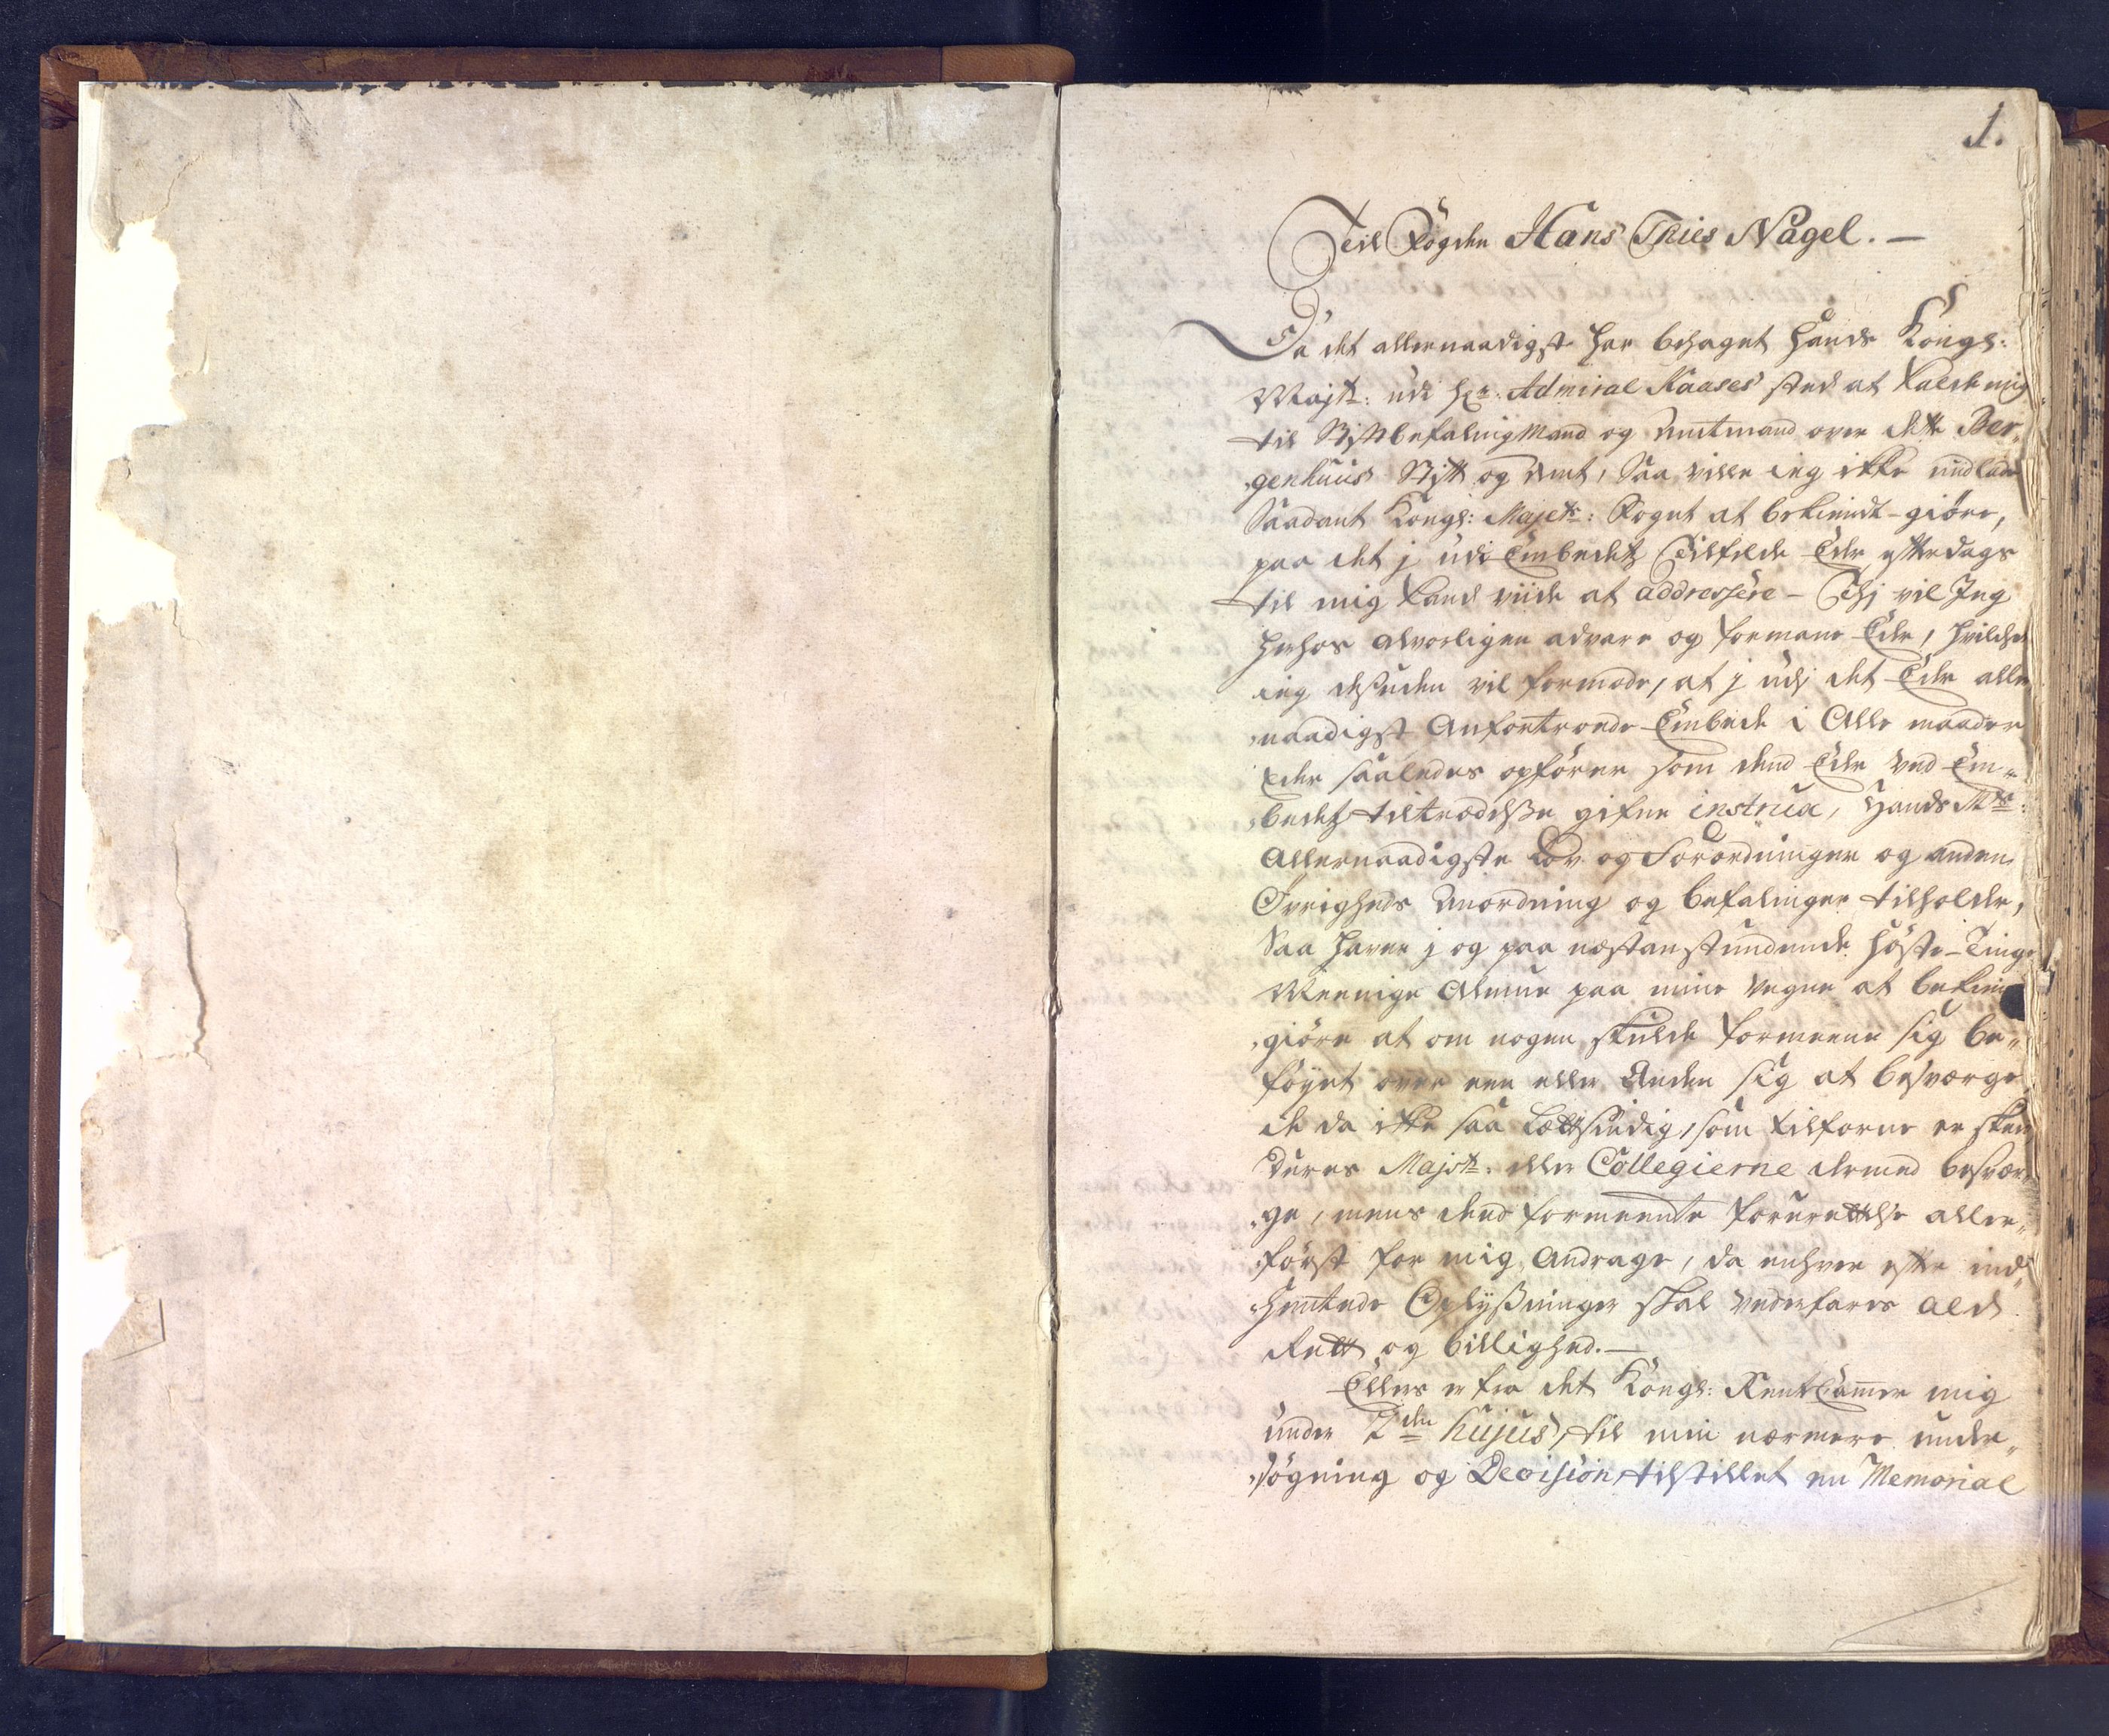 1.
Til Fogden Hans Thies Nagel. —
Da det allernaadigst har behaget Hands Kongl:
Majt: udi Hr: Admiral Kaases sted at kalde mig
til Stiftbefalingsmand og Amtmand over dette Ber„
„genhuus Stift og Amt, Saa ville ieg ikke undlade
Saadant Kongl: Majets: Foget at bekiendt-giöre,
paa det j udi Embedets Tilfelde Eder efterdags
til mig kand viide at addressere — Thj vil Jeg
herhos alvorligen advare og formane Eder, hvilchet
ieg desuden vil formode, at j udj det Eder aller
„naadigst Anfortroede Embede i Alle maader
Eder saaledes opfører som dend Eder ved Em„
„bedets tiltrædelse gifne instrux, Hands Mts:
Allernaadigste Lov og Forordninger og anden
Øvrigheds Anordning og befalinger tilholder,
Saa haver j og paa næstanstundende Höste-Tinge
Meenige Almue paa mine vegne at bekiendt
„giöre at om nogen skulde formeene sig be„
föyet over een eller Anden sig at besværge
de da ikke saa Lættsindig, som tilforne er skeed
Deres Majstt: eller Collegierne dermed besvær„
„ge, mens dend formeente forurettelse aller„
„först for mig Andrage, da enhver efter ind„
„hentede Oplysninger skal vederfares ald
Rett og billighed. —
Ellers er fra det Kongl: RentCammer mig
under 7den hujus, til min nærmere under„
„sögning og Decision tilstillet en Memorial